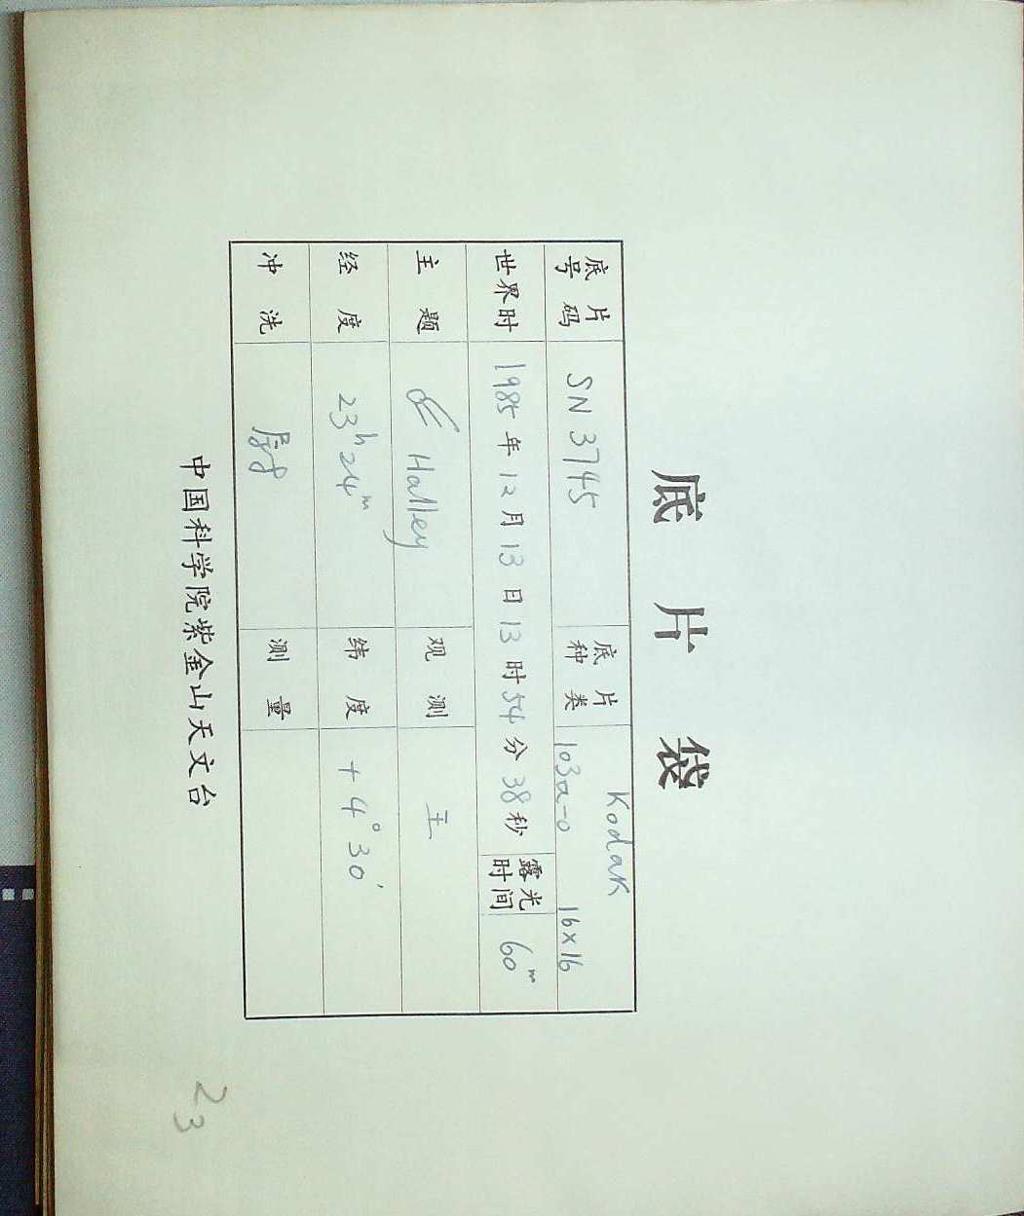 底片袋
底片号码 SN 3745 底片种类 Kodak 103a-o 16×16
世界时 1985年12月13日13时54分38秒 露光时间 60ᵐ
主题 Halley 观测 王
经度 23ʰ24ᵐ 纬度 +4°30′
冲洗 测量
中国科学院紫金山天文台
23